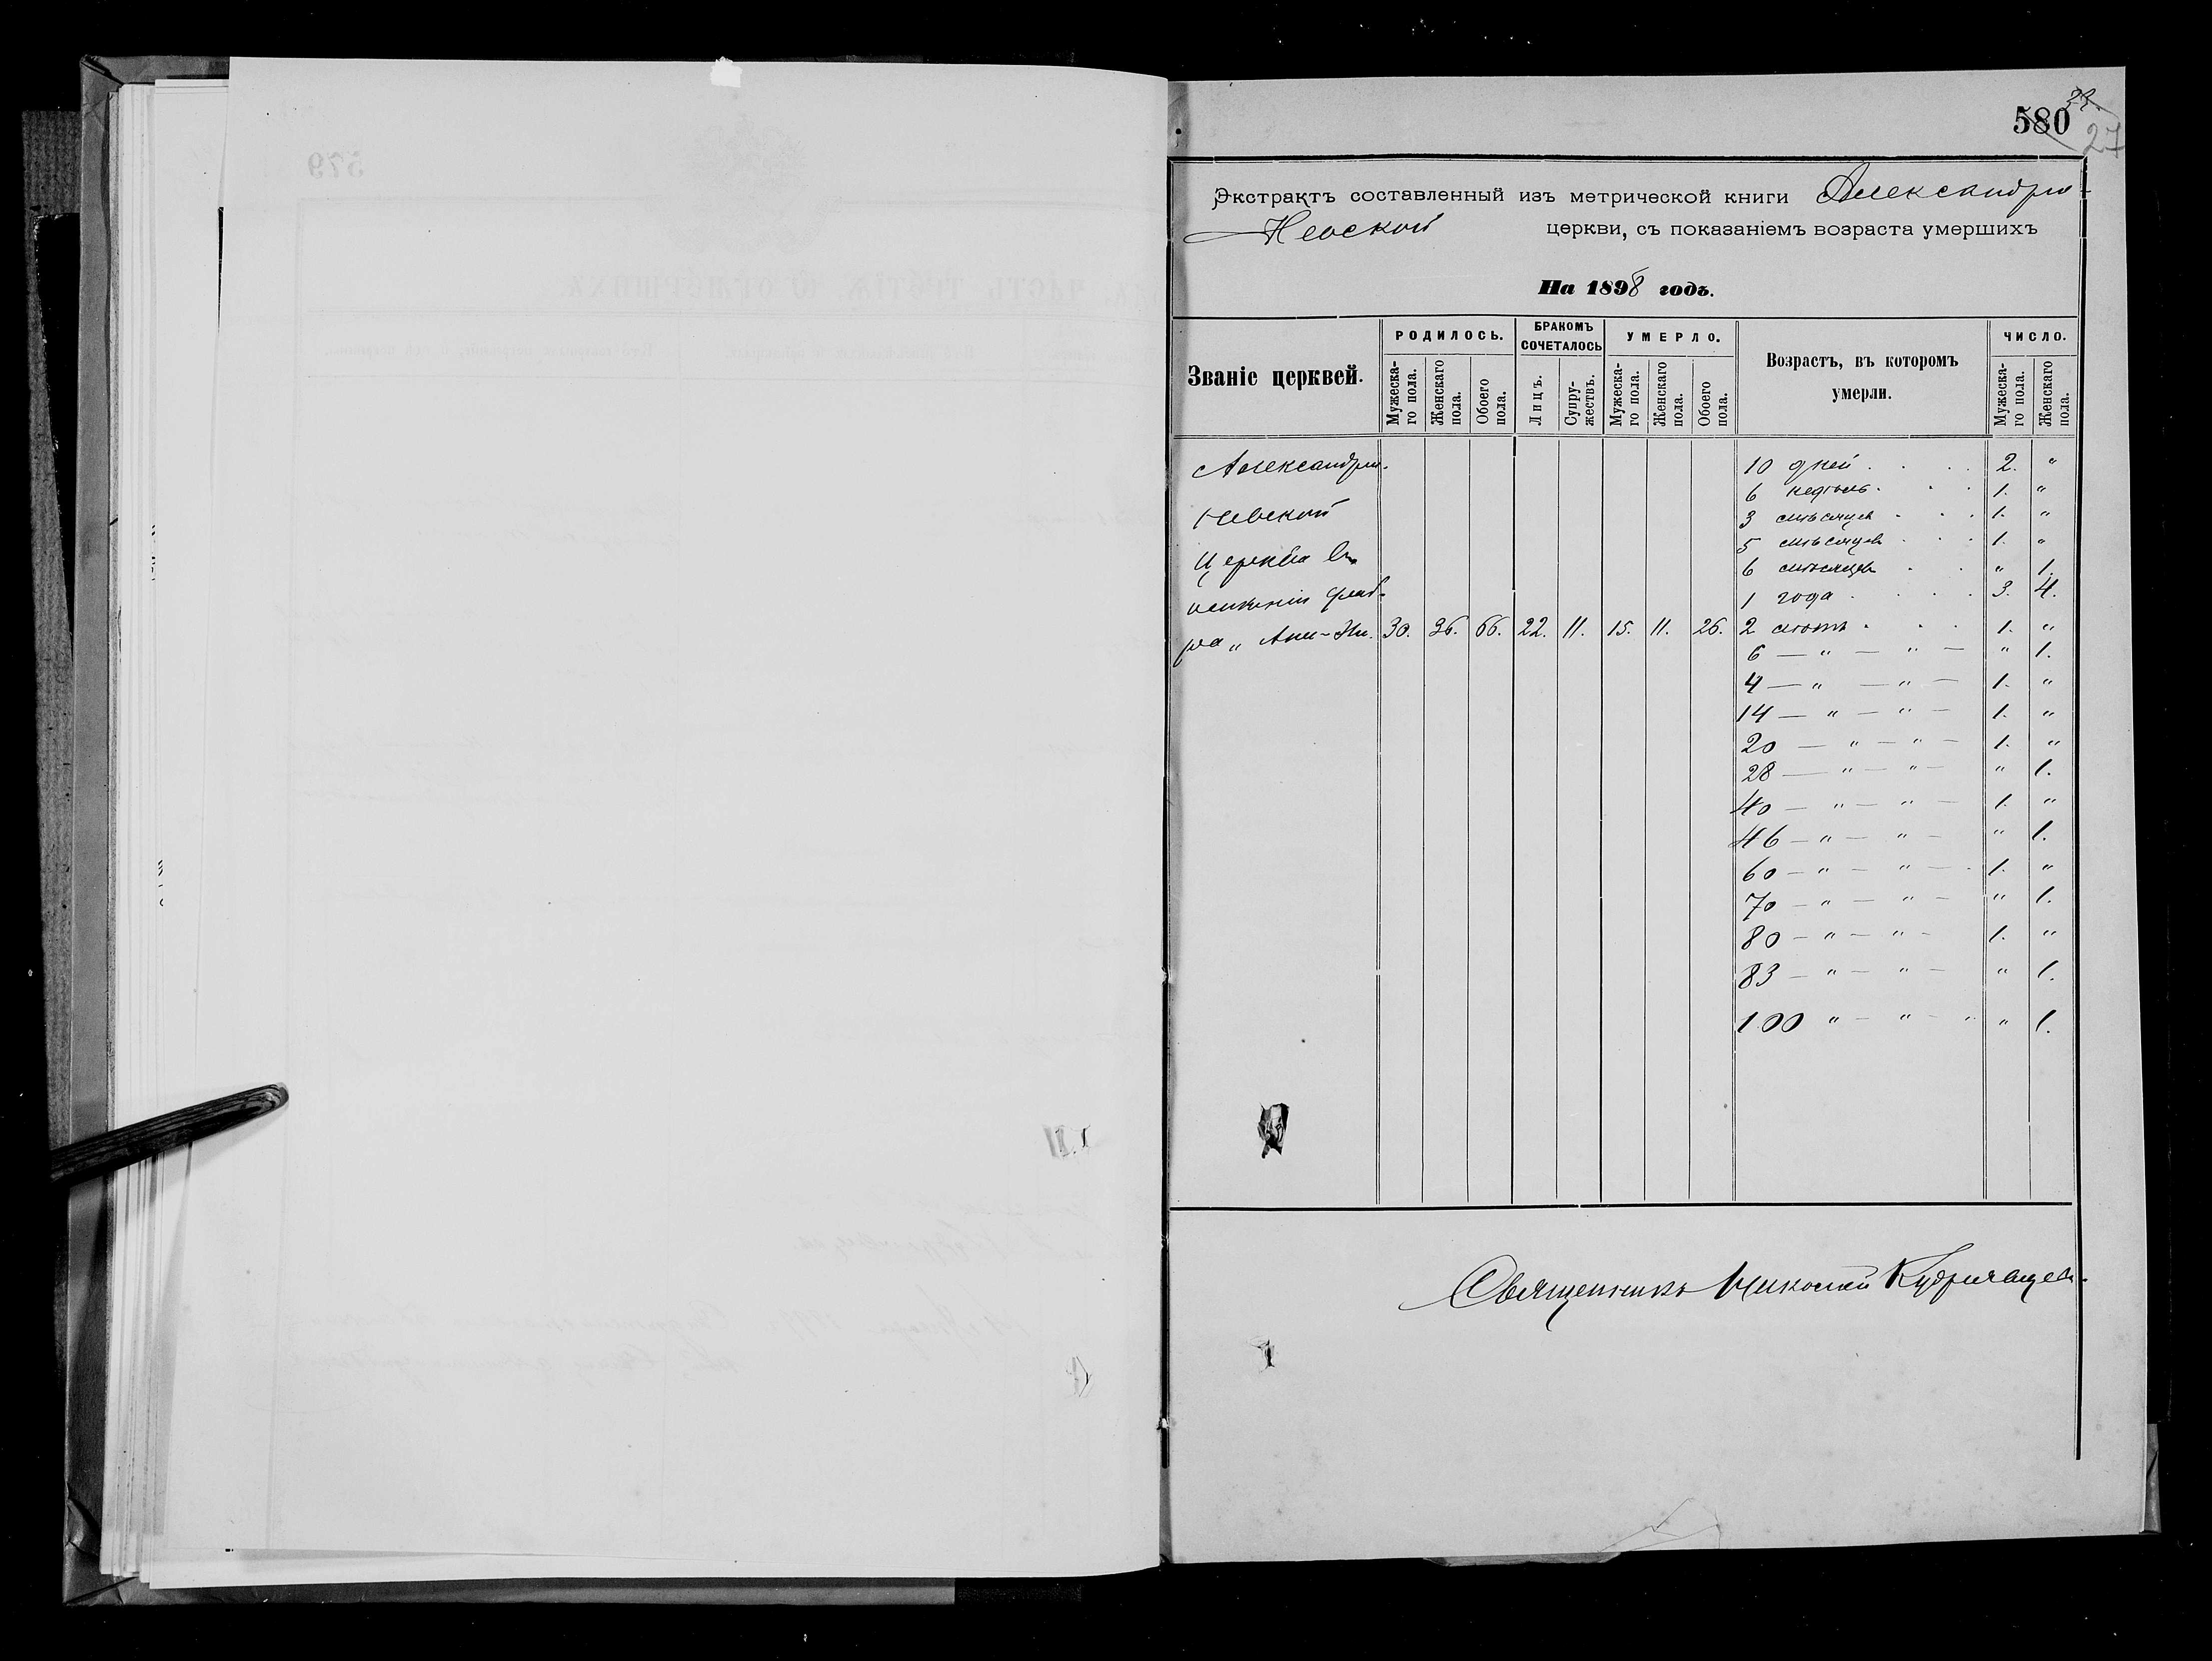 580
27
Экстрактъ составленный изъ метрической книги Александро-
Невской церкви, съ показаніемъ возраста умершихъ
На 1898 годъ.
Званіе церквей.
РОДИЛОСЬ.
БРАКОМЪ СОЧЕТАЛОСЬ
УМЕРЛО.
Возрастъ, въ которомъ умерли.
ЧИСЛО.
Мужеска-го пола. Женскаго пола. Обоего пола. Лицъ. Супру-жествъ. Мужеска-го пола. Женскаго пола. Обоего пола. Мужеска-го пола. Женскаго пола.
Александро-
Невской
Церкви въ
30. 36. 66. 22. 11. 15. 11. 26.
10 дней . . . . 2. "
6 недѣль . . . 1. "
3 мѣсяцев . . . 1. "
5 мѣсяцев . . . 1. "
6 мѣсяцев . . " 1.
1 года . . . . 3. 4.
2 лѣтъ . . . 1. "
6 — " — " — " 1.
4 — " — " — 1. "
14 — " — " — 1. "
20 — " — " — 1. "
28 — " — " — " 1.
40 — " — " — 1. "
46 — " — " — " 1.
60 — " — " — 1. "
70 — " — " — " 1.
80 — " — " — 1. "
83 — " — " — " 1.
100 " — " — " " 1.
Священникъ Николай Кудрявцевъ.